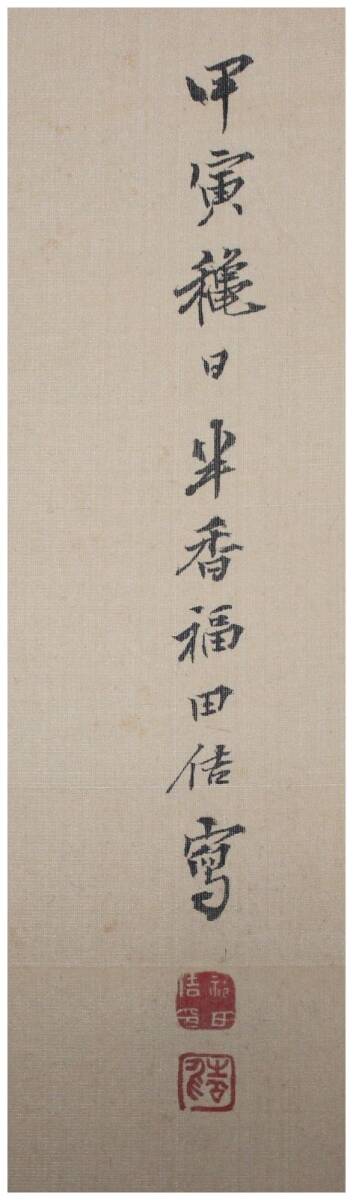 甲寅龝日半香福田佶寫
福田
佶印